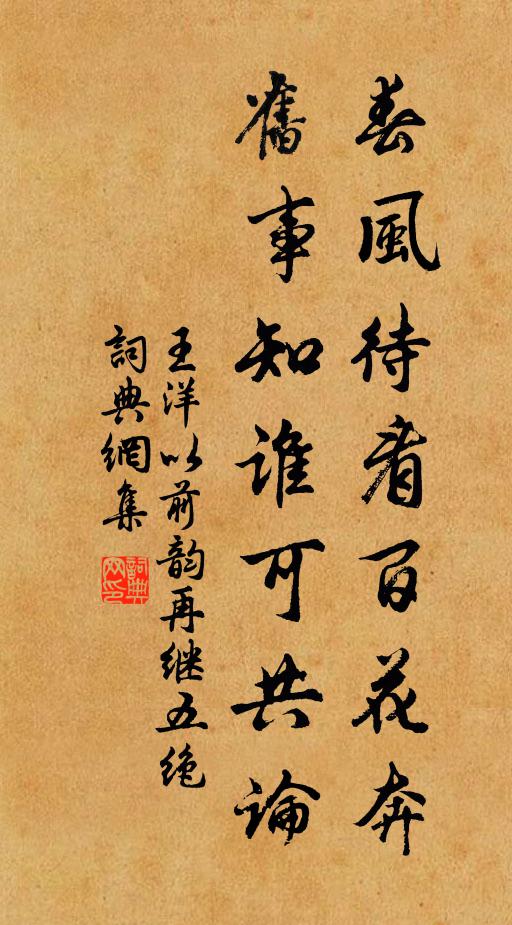 春風待看百花奔
舊事知誰可共論
王洋以前韵再继五绝
詞典網集
詞典
网印